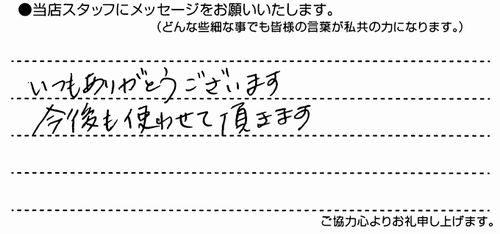 ●当店スタッフにメッセージをお願いいたします。
(どんな些細な事でも皆様の言葉が私共の力になります。)
いつもありがとうございます
今後も使わせて頂きます
ご協力心よりお礼申し上げます。